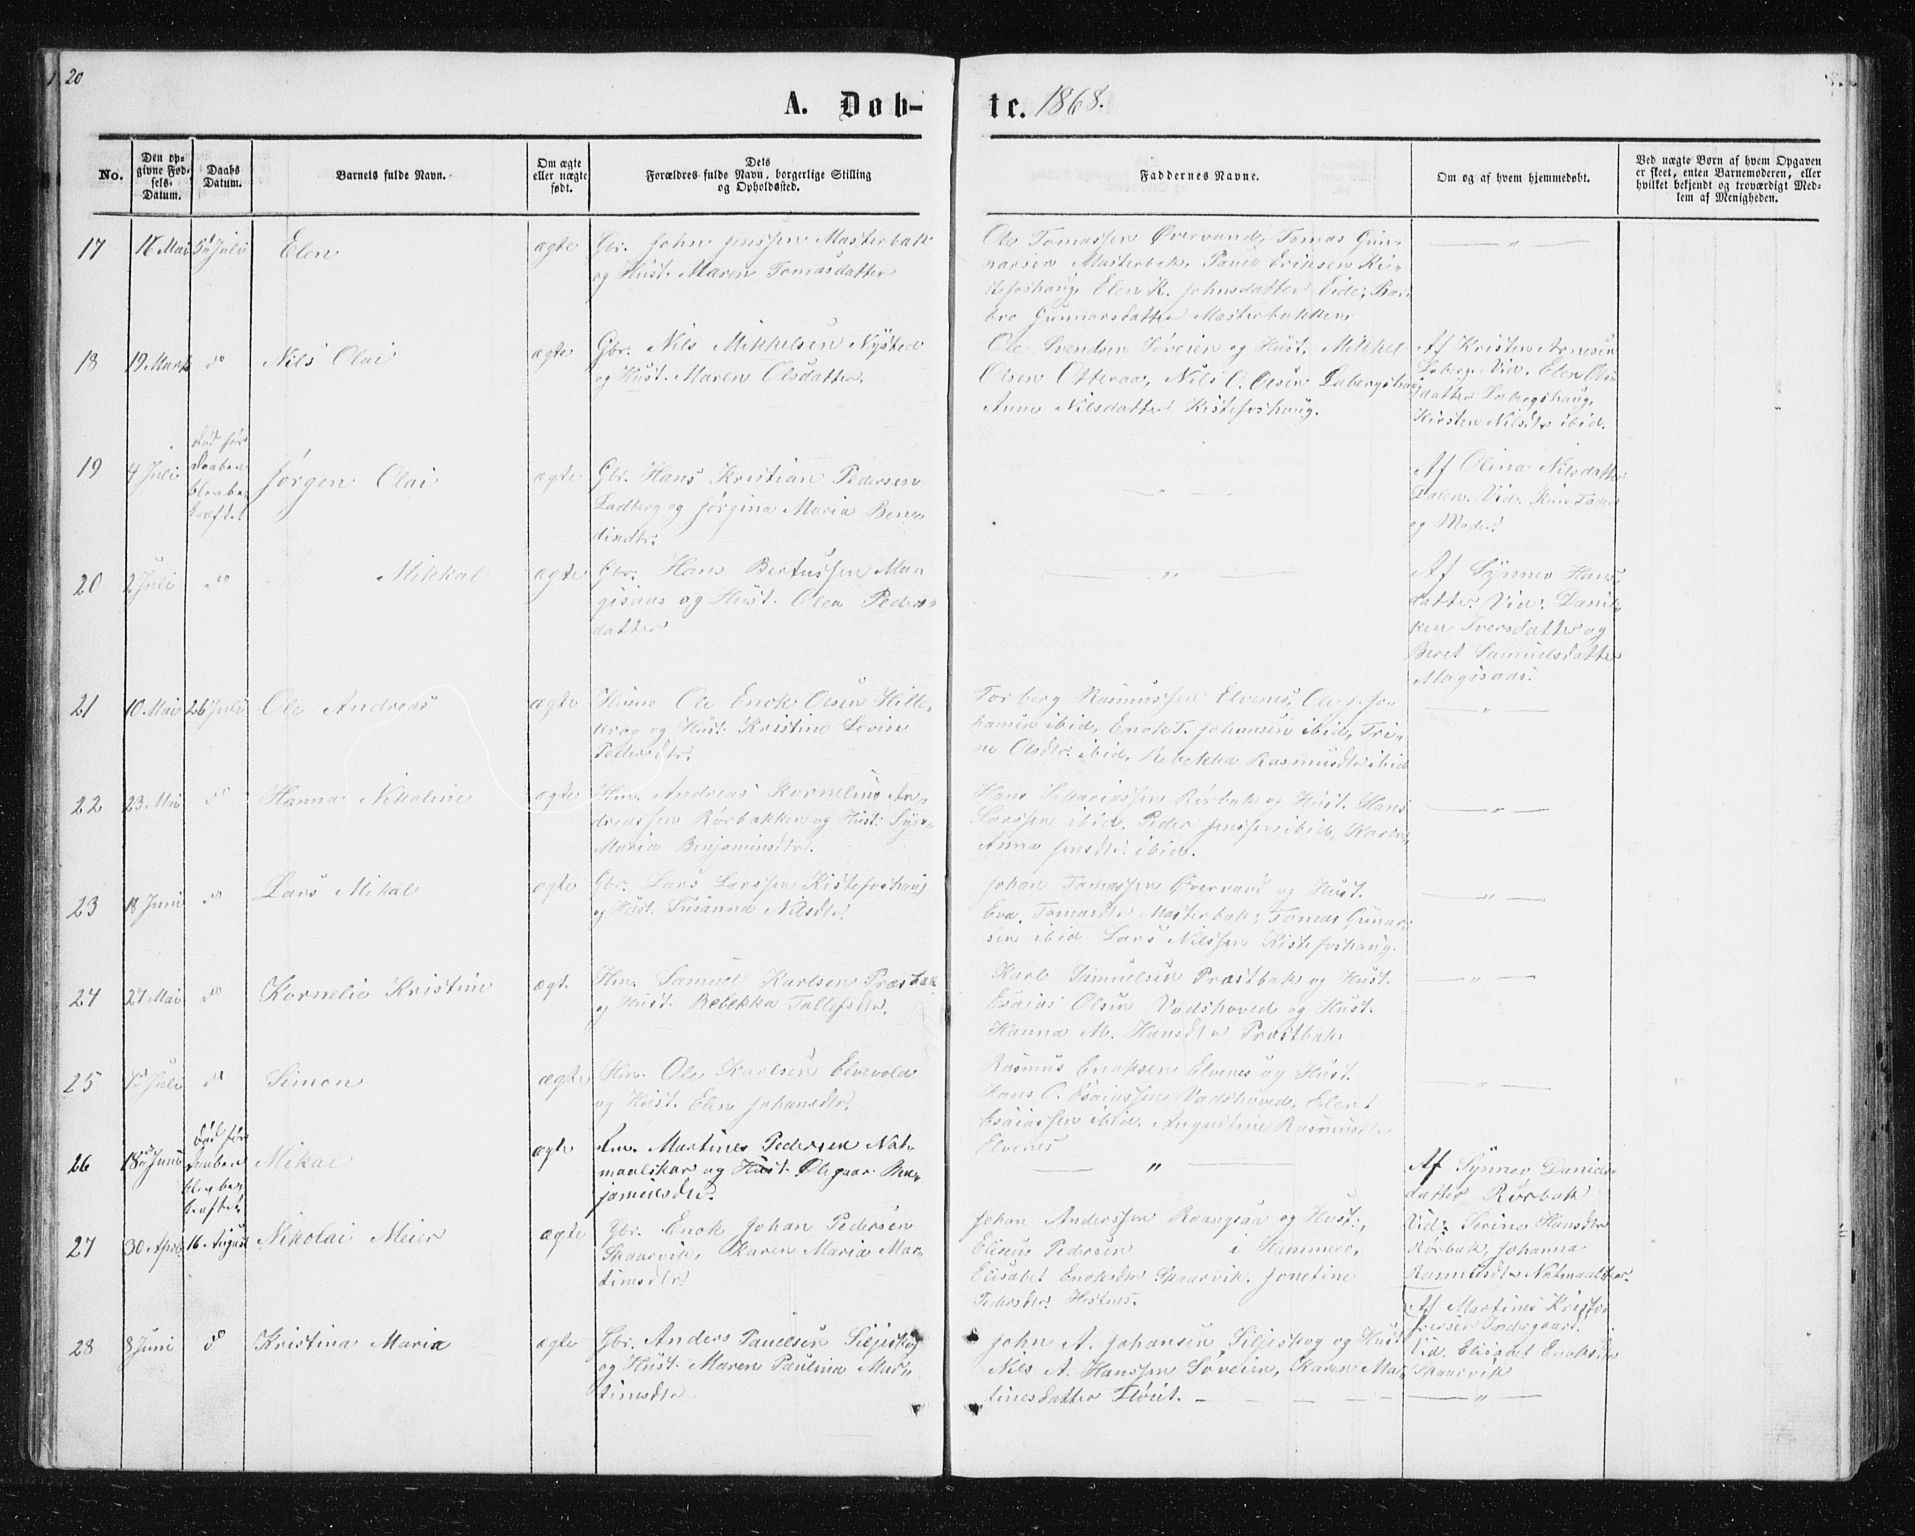 20
A. Døb-
te. 1868.
No.
Den op-
givne Fød-
sels-
Datum.
Daabs
Datum.
Barnets fulde Navn.
Om ægte
eller uægte
født.
Dets
Forældres fulde Navn, borgerlige Stilling
og Opholdssted.
Faddernes Navne.
Om og af hvem hjemmedøbt.
Ved uægte Børn af hvem Opgaven
er skeet, enten Barnemoderen, eller
hvilket bekjendt og troværdigt Med-
lem af Menigheden.
17
Mai
Juli
Elen
ægte
Gbr. John Jenssen Masterbak
og Hust. Maren Tomasdatter
Ole Tomassen Øvervand, Tomas Gun-
narsen Masterbak, Eriksen Ki-
stefoshaug, Elen K. Johnsdatter Eide,
Gunnarsdatter Masterbakken
— " —
18
19 Marts
do
Nils Olai
ægte
Gbr. Nils Mikkelsen Nysted
og Hust. Maren Olsdatter.
Ole Svendsen Søveien og Hust. Mikkel
Olsen Otteraa, Nils O. Olsen Labergshaug
Anne Nilsdatter Kistefoshaug.
Af Kristen Arnesen
Laberg. Vid. Elen Ols-
datter Labergshaug,
Kirsten Nilsdtr ibid.
19
4 Juli
Død før
Daaben
blev be-
kræftet
Jørgen Olai
ægte
Gbr. Hans Kristian Pedersen
Ladberg og Jørgina Maria Ben-
dtr.
— " —
Af Olina Nilsdatter
Dalen. Vid.
og Moder.
20
2 Juli
do
Mikkal
ægte
Gbr. Hans Bertussen Ma-
gisaas og Hust. Olea Peders-
datter
— " —
Af Synnev Hans-
datter. Vid. Danik-
ken Iversdatter og
Beret Samuelsdatter
Magisaas.
21
10 Mai
26 Juli
Ole Andreas
ægte
Ole Enok Olsen Hille-
krog og Hust. Kristine Lovise
Pettersdtr.
Torberg Rasmussen Elvenes, Ole J. Jo-
hansen ibid, Enok T. Johansen ibid, Tri-
ne Olsdtr. ibid, Rebekka Rasmusdtr ibid
— " —
22
23 Mai
do
Hanna Nikoline
ægte
Hm. Andreas Kornelius An-
dreassen Rørbakken og Hust.
Maria Benjaminsdtr.
Hans Sakariassen Rørbak og Hust. Hans
Larssen ibid, Peder Jenssen ibid, Karen
Anna Jensdtr. ibid.
— " —
23
18 Juni
do
Lars Mikal
ægte
Gbr. Lars Larssen Kistefoshaug
og Hust. Susanna Nilsdtr.
Johan Tomassen Øvervand og Hust.
Eva. Tomasdtr Masterbak, Tomas Gunar-
sen ibid Lars Nilssen Kistefoshaug.
— " —
24
27 Mai
do
Kornelie Kristine
ægt.
Hm. Samuel Karlsen Præstbak
og Hust. Rebekka Tollefsdtr.
Karl Samuelsen Præstbak og Hust.
Esaias Olsen Vadshoved og Hust.
Hanna M. Hansdtr Præstbak
— " —
25
Juli
do
Simon
ægte
Hm. Ole Karlsen Elvevold
og Hust. Elen Johansdtr.
Rasmus Enoksen Elvenes og Hust.
Hans O. Esaiassen Vadshoved, Elert
Esaiassen ibid, Augustine Rasmusdtr
Elvenes
— " —
26
18de Juni
Død før
Daaben
blev be-
kræftet
Mikal
ægte
Martines Pedersen Nat-
maalskar og Hust. Olegaar Ben-
jaminsdtr.
— " —
Af Synnev Daniels-
datter Rørbak
Vid. Serine Hansdtr
Rørbak, Johanna
Rasmusdtr Natmaalskar.
27
30 April
16 August
Nikolai Meier
ægte
Gbr. Enok Johan Pedersen
Skaarvik, Karen Maria Mar-
tinsdtr.
Johan Anderssen Raangaa og Hust.,
Elisius Pedersen i Hammerø,
Elisabet Enoksdtr Skaarvik, Jonetine
Pedersdtr. Hestnes.
Af Martines Kristof-
fersen
Vid. Elisabet Enoksdtr
Skaarvik
28
8 Juni
do
Kristina Maria
ægte
Gbr. Anders Paulsen Siljeskog
og Hust. Maren Paulina Mar-
tinsdtr
John A. Johansen, Siljeskog og Hust
Nils A. Hanssen Søveien, Karen Mar-
tinesdatter
— " —